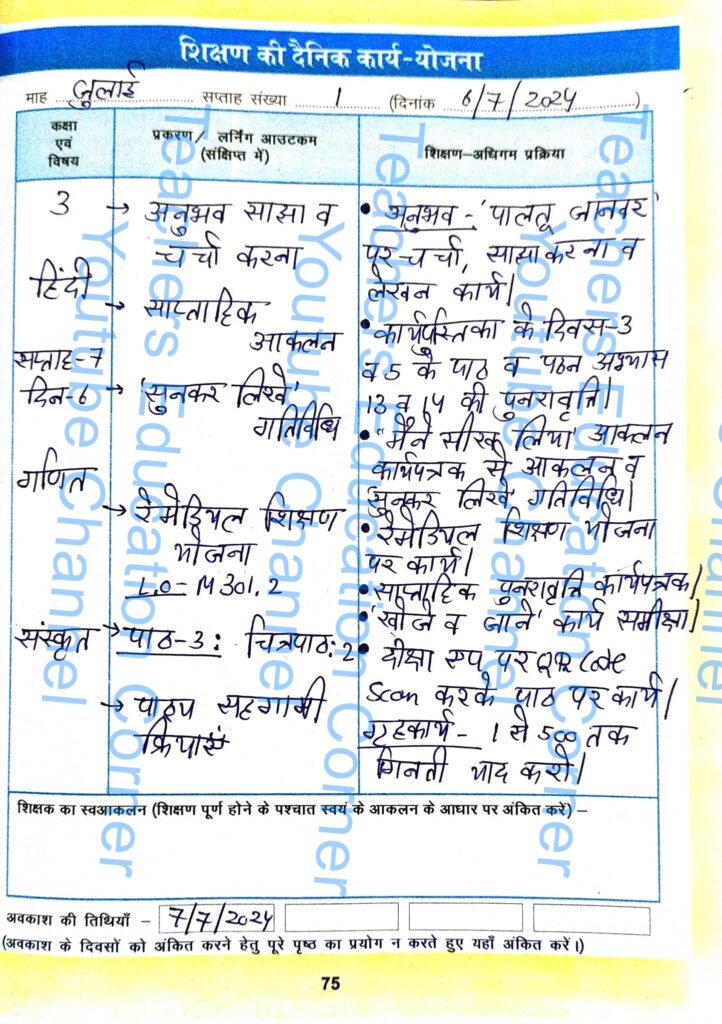 शिक्षण की दैनिक कार्य-योजना
माह जुलाई सप्ताह संख्या 1 (दिनांक 6/7/2024)
कक्षा
एवं
विषय
प्रकरण/ लर्निंग आउटकम
(संक्षिप्त में)
शिक्षण-अधिगम प्रक्रिया
3
हिंदी
सप्ताह-7
दिन-6
गणित
संस्कृत
→ अनुभव साझा व
चर्चा करना
→ साप्ताहिक
आकलन
→ 'सुनकर लिखे'
गतिविधि
→ रेमेडियल शिक्षण
योजना
L.O- M 301.2
→ पाठ-3: चित्रपाठ: 2
→ पाठ्य सहगामी
क्रियाएं
• अनुभव - 'पालतू जानवर'
पर चर्चा, साझा करना व
लेखन कार्य।
• कार्यपुस्तिका के दिवस-3
व 5 के पाठ व पठन अभ्यास
13 व 14 की पुनरावृत्ति।
• "मैंने सीख लिया' आकलन
कार्यपत्रक से आकलन व
सुनकर लिखे' गतिविधि।
• रेमेडियल शिक्षण योजना
पर कार्य।
• साप्ताहिक पुनरावृत्ति कार्यपत्रक।
• 'खोजे व जाने' कार्य समीक्षा।
• दीक्षा एप पर QR Code
Scan करके पाठ पर कार्य।
गृहकार्य - 1 से 500 तक
गिनती याद करो।
शिक्षक का स्वआकलन (शिक्षण पूर्ण होने के पश्चात स्वयं के आकलन के आधार पर अंकित करें) –
अवकाश की तिथियाँ – 7/7/2024
(अवकाश के दिवसों को अंकित करने हेतु पूरे पृष्ठ का प्रयोग न करते हुए यहाँ अंकित करें।)
75
Teachers Education Corner
Youtube Channel
Teachers Education Corner
Youtube Channel
Teachers Education Corner
Youtube Channel